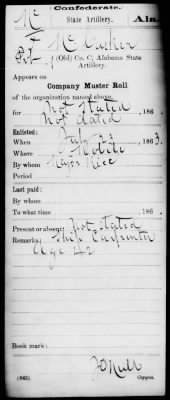 Confederate.
Mc
State Artillery.
Ala.
F Mc
Pvt, (Old) Co. C, Alabama State
Artillery.
Appears on
Company Muster Roll
of the organization named above,
for Not Stated, 186 .
Not dated
Enlisted:
When 23, 1863.
Where Mobile
By whom Major Hice
Period
Last paid:
By whom
To what time , 186 .
Present or absent Not Stated
Remarks: Ship Carpenter
Age 42
Book mark:
(642) Copyist.